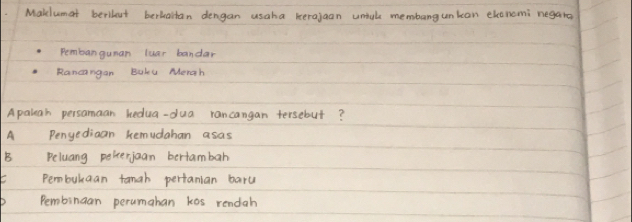 Maklumat berikut berkaitan dengan usaha kerajaan untuk membangunkan ekonomi negara
• Pembangunan luar bandar
• Rancangan Buku Merah
Apakah persamaan kedua-dua rancangan tersebut ?
A Penyediaan kemudahan asas
B Peluang pekerjaan bertambah
C Pembukaan tanah pertanian baru
D Pembinaan perumahan kos rendah